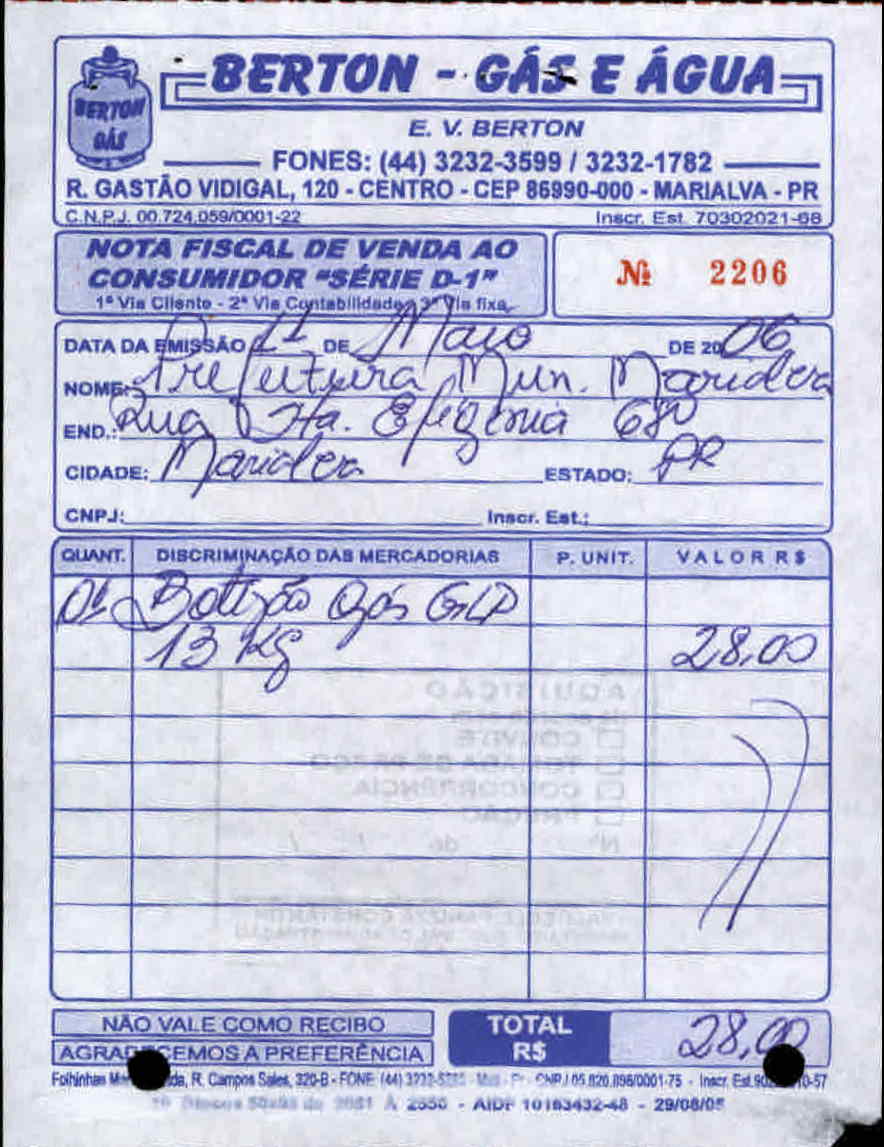 BERTON GÁS
BERTON - GÁS E ÁGUA
E. V. BERTON
FONES: (44) 3232-3599 / 3232-1782
R. GASTÃO VIDIGAL, 120 - CENTRO - CEP 86990-000 - MARIALVA - PR
C.N.P.J. 00.724.059/0001-22 Inscr. Est. 70302021-68
NOTA FISCAL DE VENDA AO
CONSUMIDOR "SÉRIE D-1"
1ª Via Cliente - 2ª Via Contabilidade - 3ª Via fixa
Nº 2206
DATA DA EMISSÃO 11 DE Maio DE 2006
NOME: Prefeitura Mun.
END.: Rua Sta. Efigênia 680
CIDADE: ESTADO: PR
CNPJ: Inscr. Est.:
QUANT. DISCRIMINAÇÃO DAS MERCADORIAS P. UNIT. VALOR R$
01 Botijão Gás GLP
13 Kg 28,00
AQUISIÇÃO
CONVITE
TOMADA DE PREÇO
CONCORRÊNCIA
Nº de / /
NÃO VALE COMO RECIBO
AGRADECEMOS A PREFERÊNCIA
TOTAL R$ 28,00
Folhinhas R. Campos Sales, 320-B - FONE: (44) - CNPJ 05.820.896/0001-75 - Inscr. Est.
10 Blocos 50x03 de 2051 À 2550 - AIDF 10163432-48 - 29/08/05